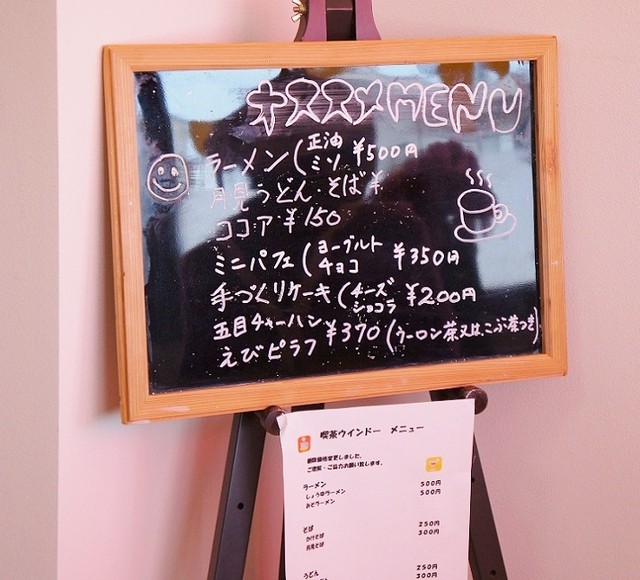 オススメMENU
ラーメン(正油 ミソ ¥500円
月見うどん・そば ¥
ココア ¥150
ミニパフェ(ヨーグルト チョコ ¥350円
手づくりケーキ(チーズ ショコラ ¥200円
五目チャーハン
えびピラフ ¥370(ウーロン茶又は、こぶ茶つき)
喫茶ウインドー メニュー
ご理解・ご協力お願い致します。
ラーメン
しょうゆラーメン 500円
みそラーメン 500円
そば
かけそば 250円
月見そば 300円
うどん
250円
300円